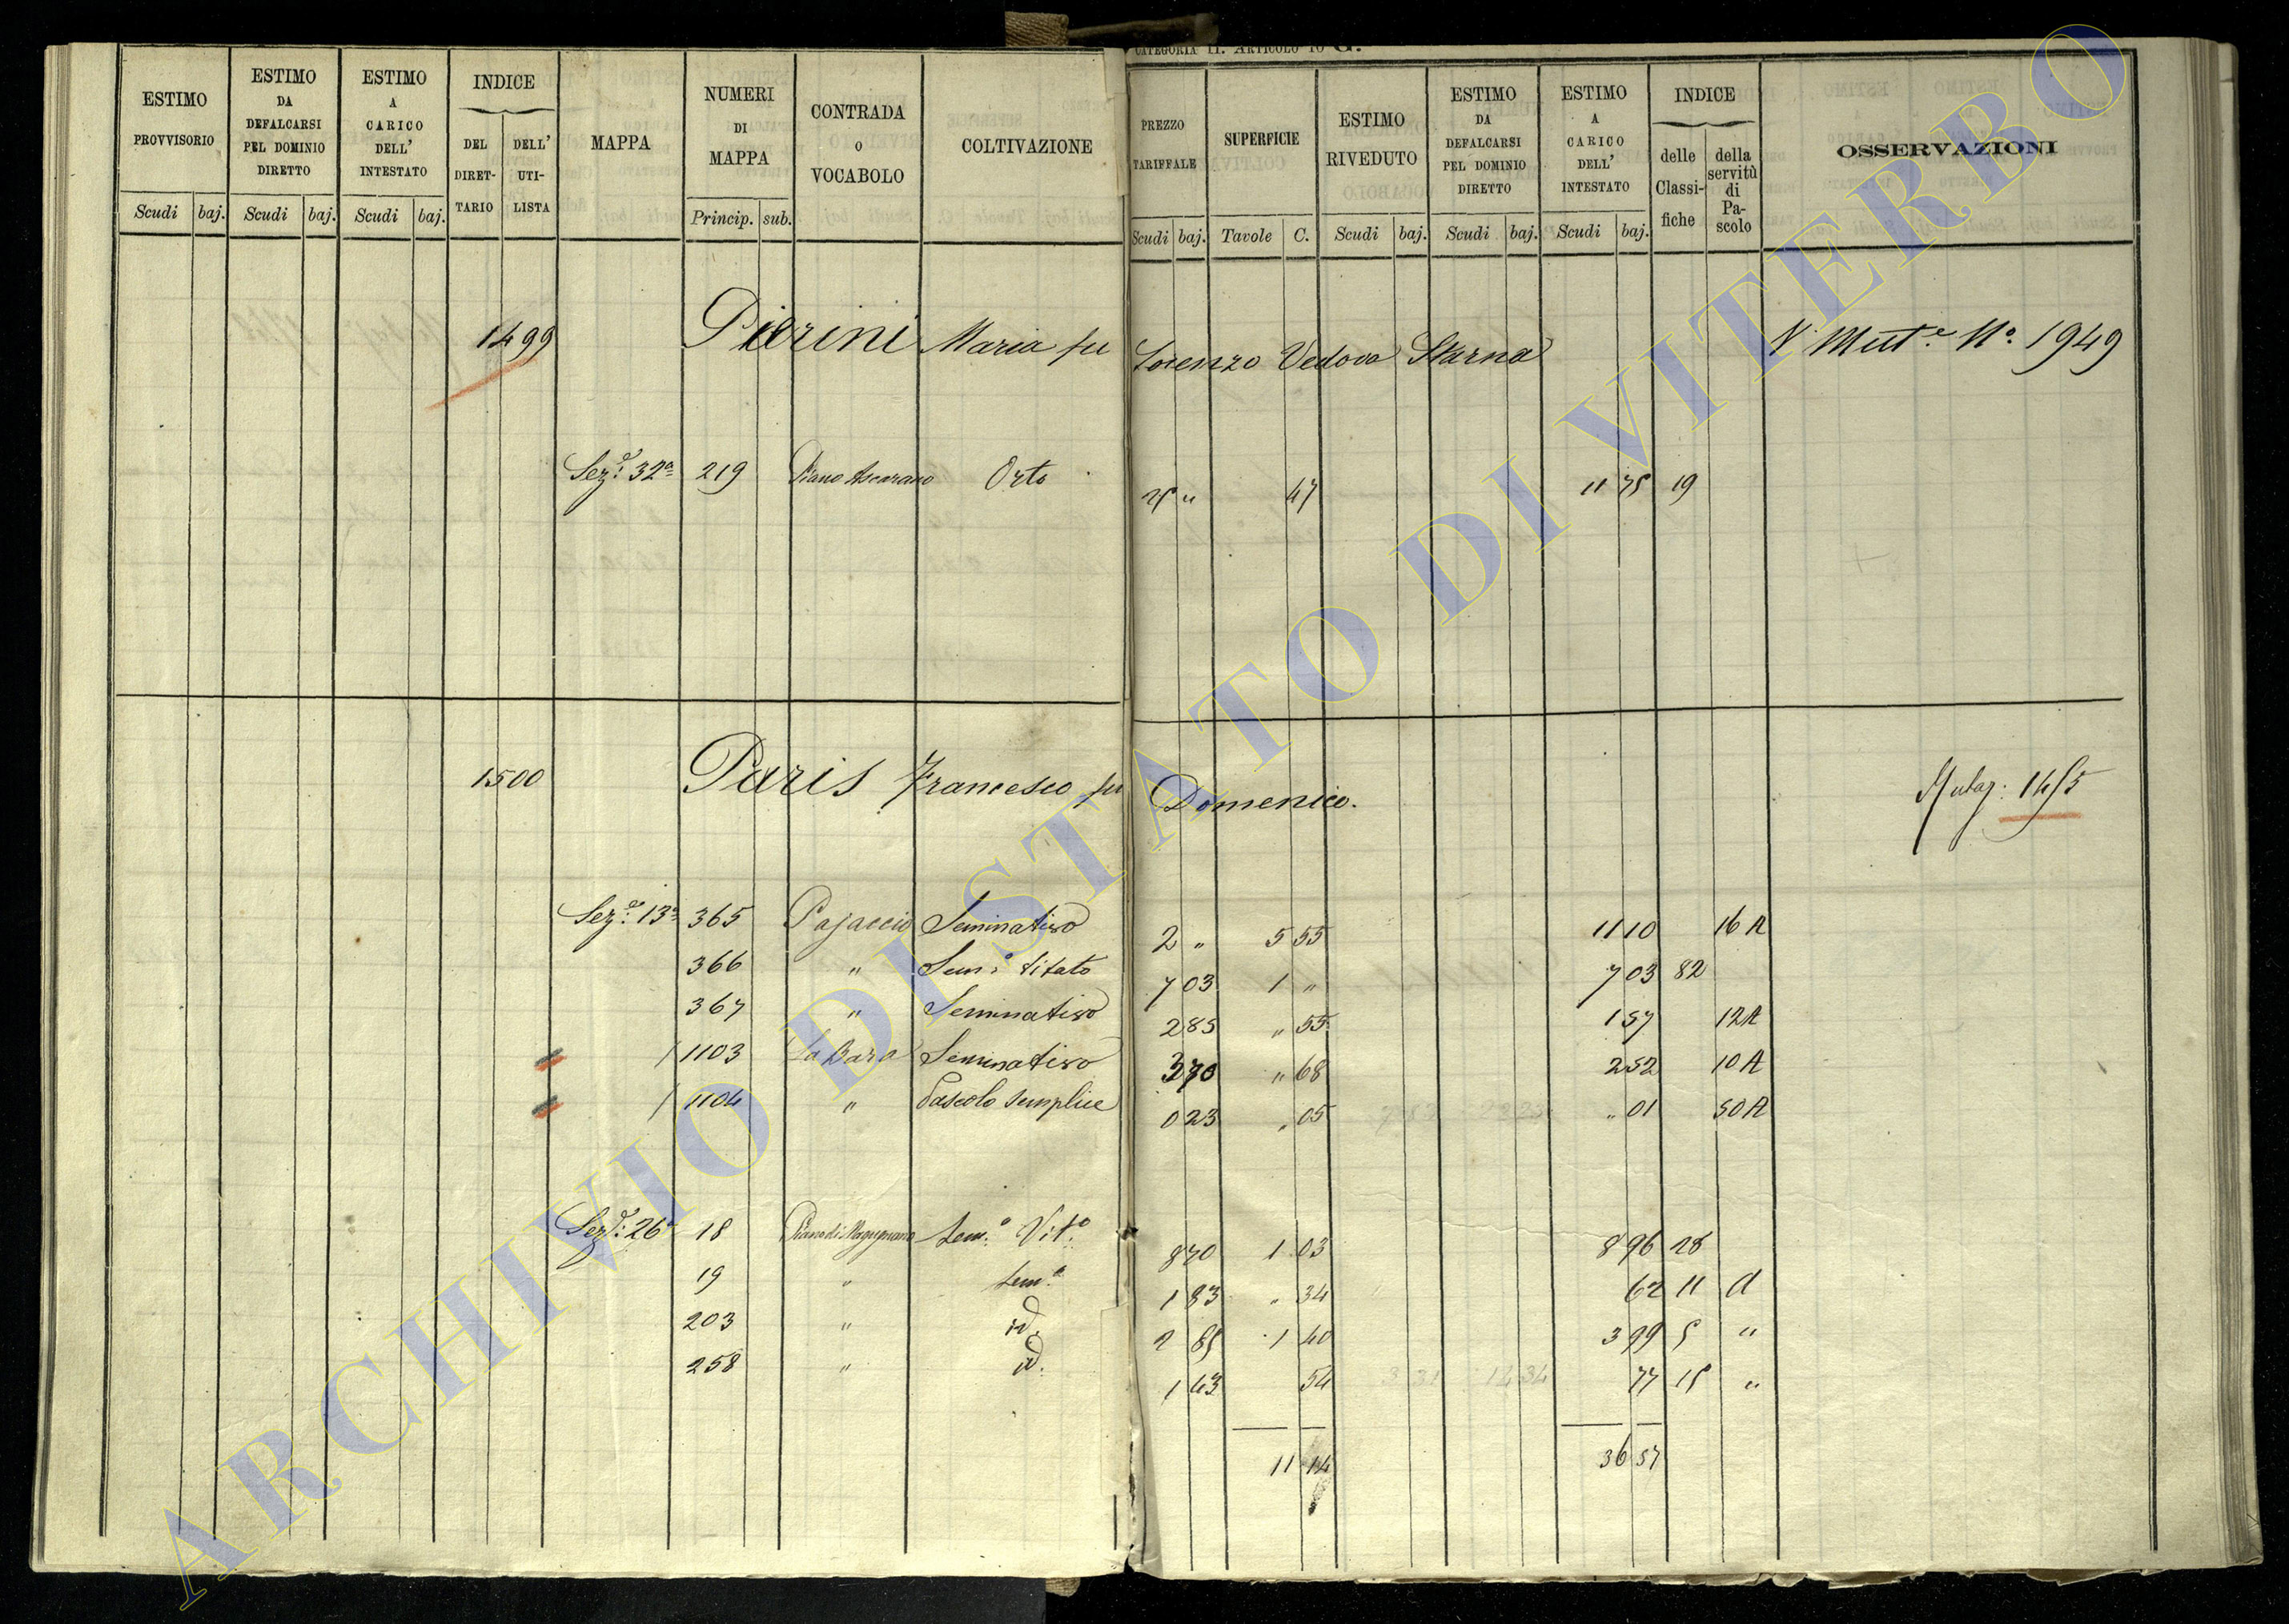 CATEGORIA II. ARTICOLO 10 G.
ESTIMO PROVVISORIO | ESTIMO DA DEFALCARSI PEL DOMINIO DIRETTO | ESTIMO A CARICO DELL' INTESTATO | INDICE | MAPPA | NUMERI DI MAPPA | CONTRADA O VOCABOLO | COLTIVAZIONE | PREZZO TARIFFALE | SUPERFICIE | ESTIMO RIVEDUTO | ESTIMO DA DEFALCARSI PEL DOMINIO DIRETTO | ESTIMO A CARICO DELL' INTESTATO | INDICE | OSSERVAZIONI
DEL DIRETTARIO | DELL' UTILISTA | delle Classifiche | della servitù di Pascolo
Scudi | baj. | Scudi | baj. | Scudi | baj. | Princip. | sub. | Scudi | baj. | Tavole | C. | Scudi | baj. | Scudi | baj. | Scudi | baj.
1499 Pierini Maria fu Lorenzo Vedova Starna V. Mut.e N.o 1949
Sez.e 32a 219 Piano Ascarano Orto 25 " 47 11 75 19
1500 Paris Francesco fu Domenico. 1455
Sez.e 13a 365 Pajaccio Seminativo 2 " 5 55 11 10 16 A
366 " Sem.o Vitato 7 03 1 " 7 03 82
367 " Seminativo 2 85 " 55 1 57 12 A
/ 1103 La Bara Seminativo 3 70 " 68 2 52 10 A
/ 1104 " Pascolo semplice 0 23 " 05 " 01 50 A
Sez.e 26a 18 Piano di Magugnano Sem.o Vit.o 8 70 1 03 8 96 28
19 " Sem.o 1 83 " 34 62 11 A
203 " id. 2 85 1 40 3 99 5 "
258 " id. 1 43 54 77 15 "
11 14 36 57
ARCHIVIO DI STATO DI VITERBO